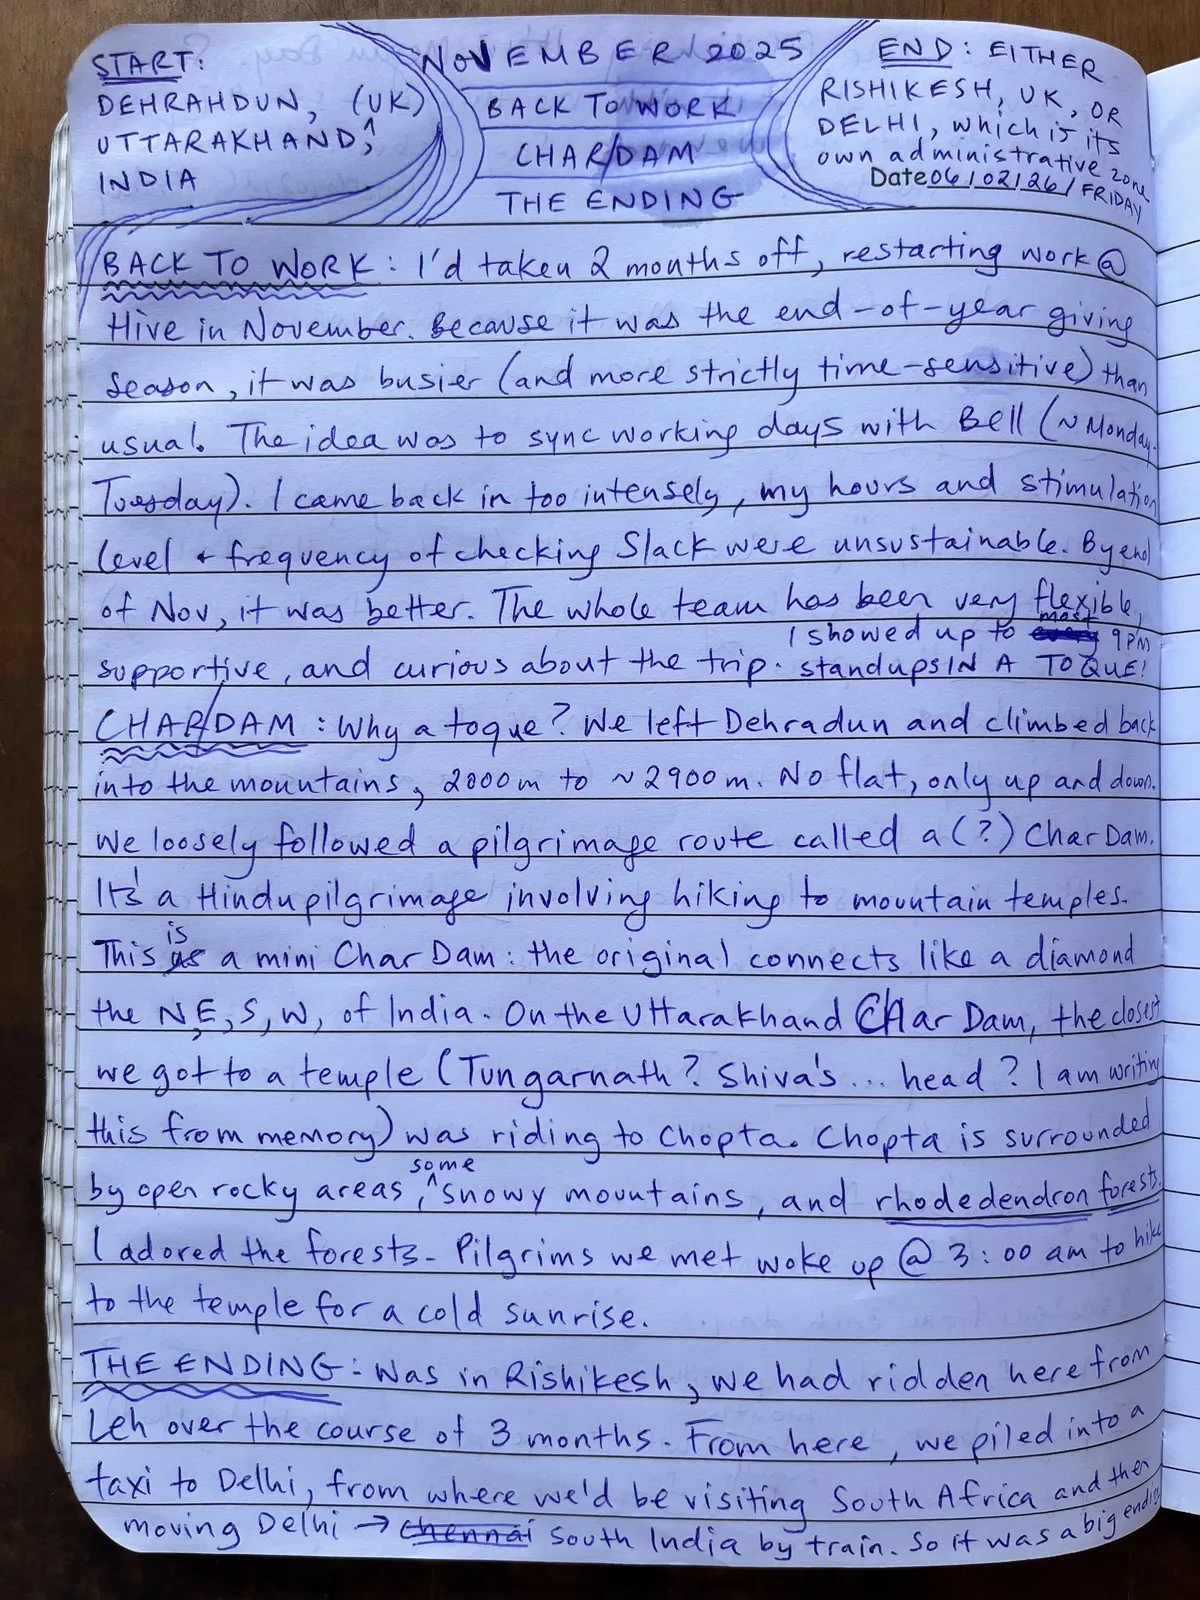 START:
DEHRAHDUN, (UK)
UTTARAKHAND, ^
INDIA
NOVEMBER 2025
BACK TO WORK
CHAR/DAM
THE ENDING
END: EITHER
RISHIKESH, UK, OR
DELHI, which is its
own administrative zone
Date 06/02/26/ FRIDAY
BACK TO WORK: I'd taken 2 months off, restarting work @
Hive in November. Because it was the end-of-year giving
season, it was busier (and more strictly time-sensitive) than
usual. The idea was to sync working days with Bell (~Monday-
Tuesday). I came back in too intensely, my hours and stimulation
level + frequency of checking Slack were unsustainable. By end
of Nov, it was better. The whole team has been very flexible,
supportive, and curious about the trip. I showed up to every most 9PM
standups IN A TOQUE!
CHAR/DAM: Why a toque? We left Dehradun and climbed back
into the mountains, 2000m to ~2900m. No flat, only up and down.
We loosely followed a pilgrimage route called a (?) Char Dam.
It's a Hindu pilgrimage involving hiking to mountain temples.
This is a mini Char Dam: the original connects like a diamond
the N, E, S, W, of India. On the Uttarakhand Char Dam, the closest
we got to a temple (Tungarnath? Shiva's... head? I am writing
this from memory) was riding to Chopta. Chopta is surrounded
by open rocky areas, ^some snowy mountains, and rhodedendron forests.
I adored the forests. Pilgrims we met woke up @ 3:00 am to hike
to the temple for a cold sunrise.
THE ENDING: Was in Rishikesh, we had ridden here from
Leh over the course of 3 months. From here, we piled into a
taxi to Delhi, from where we'd be visiting South Africa and then
moving Delhi → chennai South India by train. So it was a big ending